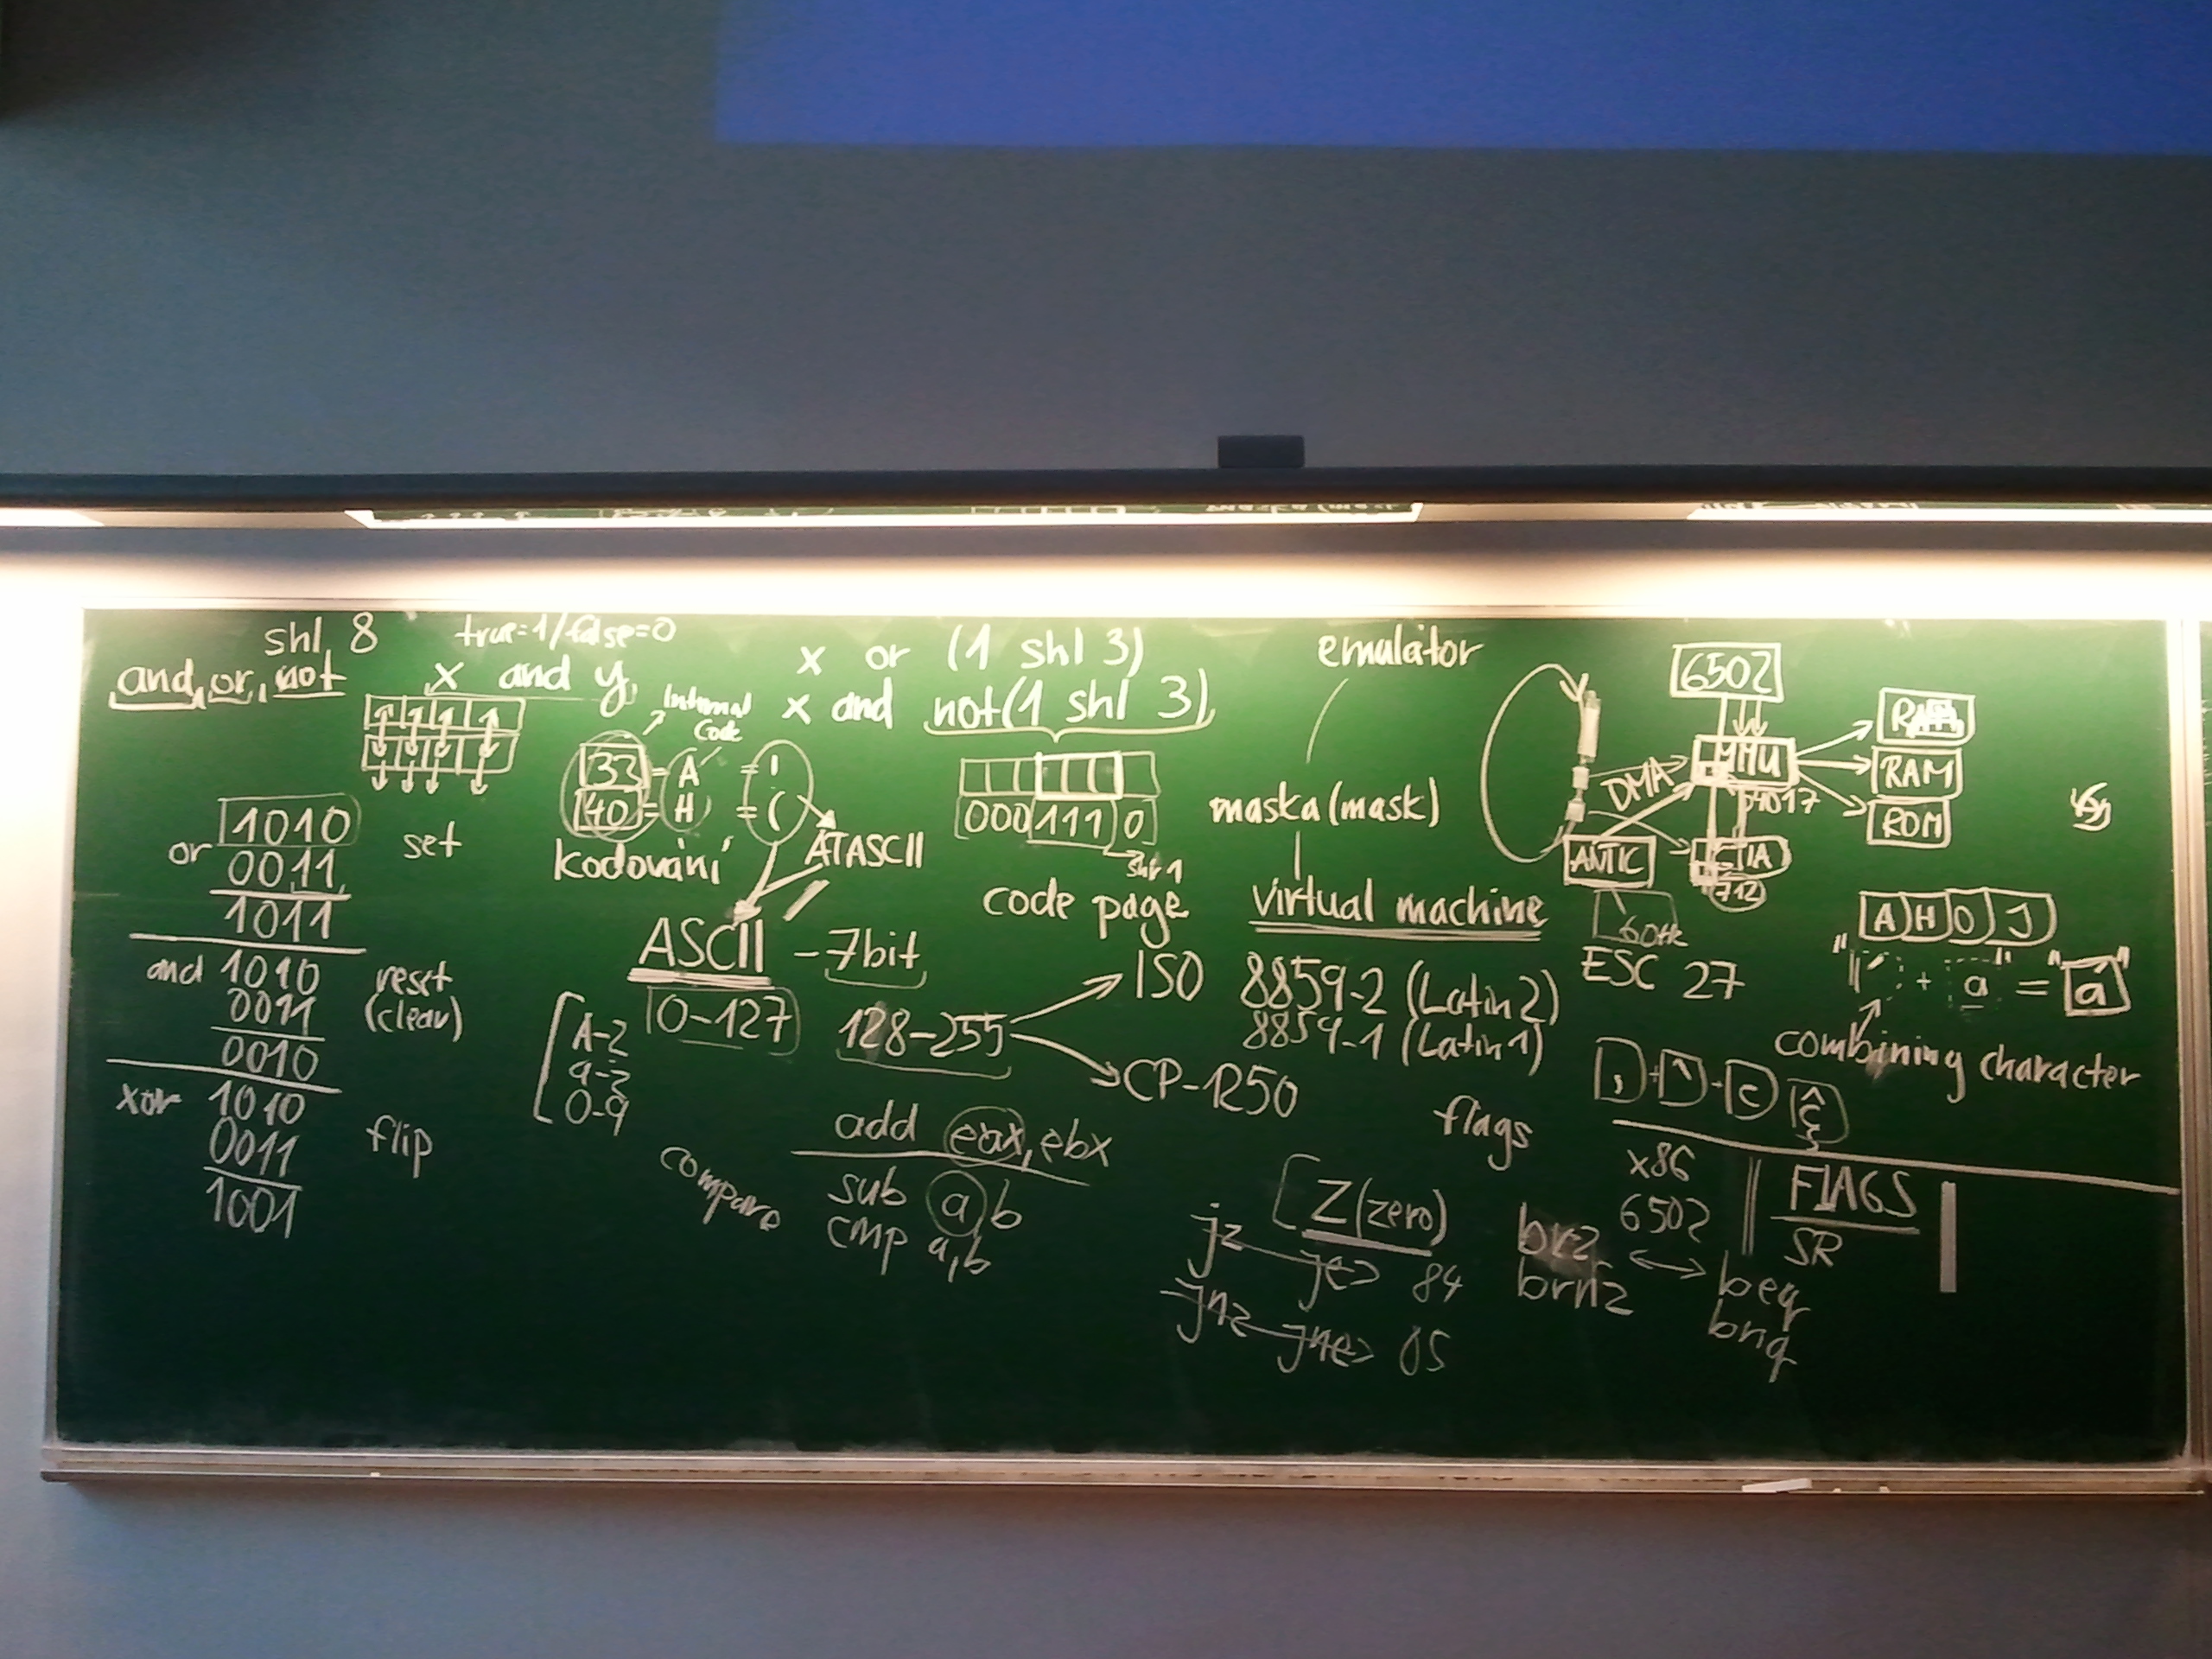 shl 8
and, or, not
true=1/false=0
x and y
1010
or 0011
1011
set
and 1010
0011
0010
reset
(clear)
xor 1010
0011
1001
flip
Internal
Code
33 = A = !
40 = H = (
kódování
ATASCII
ASCII - 7bit
0-127
A-Z
a-z
0-9
128-255
x or (1 shl 3)
x and not(1 shl 3)
000 111 0
shr 1
code page
ISO 8859-2 (Latin2)
8859-1 (Latin1)
CP-1250
add eax, ebx
compare
sub a,b
cmp a,b
emulátor
maska (mask)
virtual machine
6502
MMU
DMA
ANTIC
RAM
RAM
ROM
54017
712
ESC 27
A H O J
"´" + "a" = "á"
combining character
flags
Z (zero)
jz je > 84
jnz jne >
brz
brnz
x86
6502
FLAGS
SR
beq
bnq